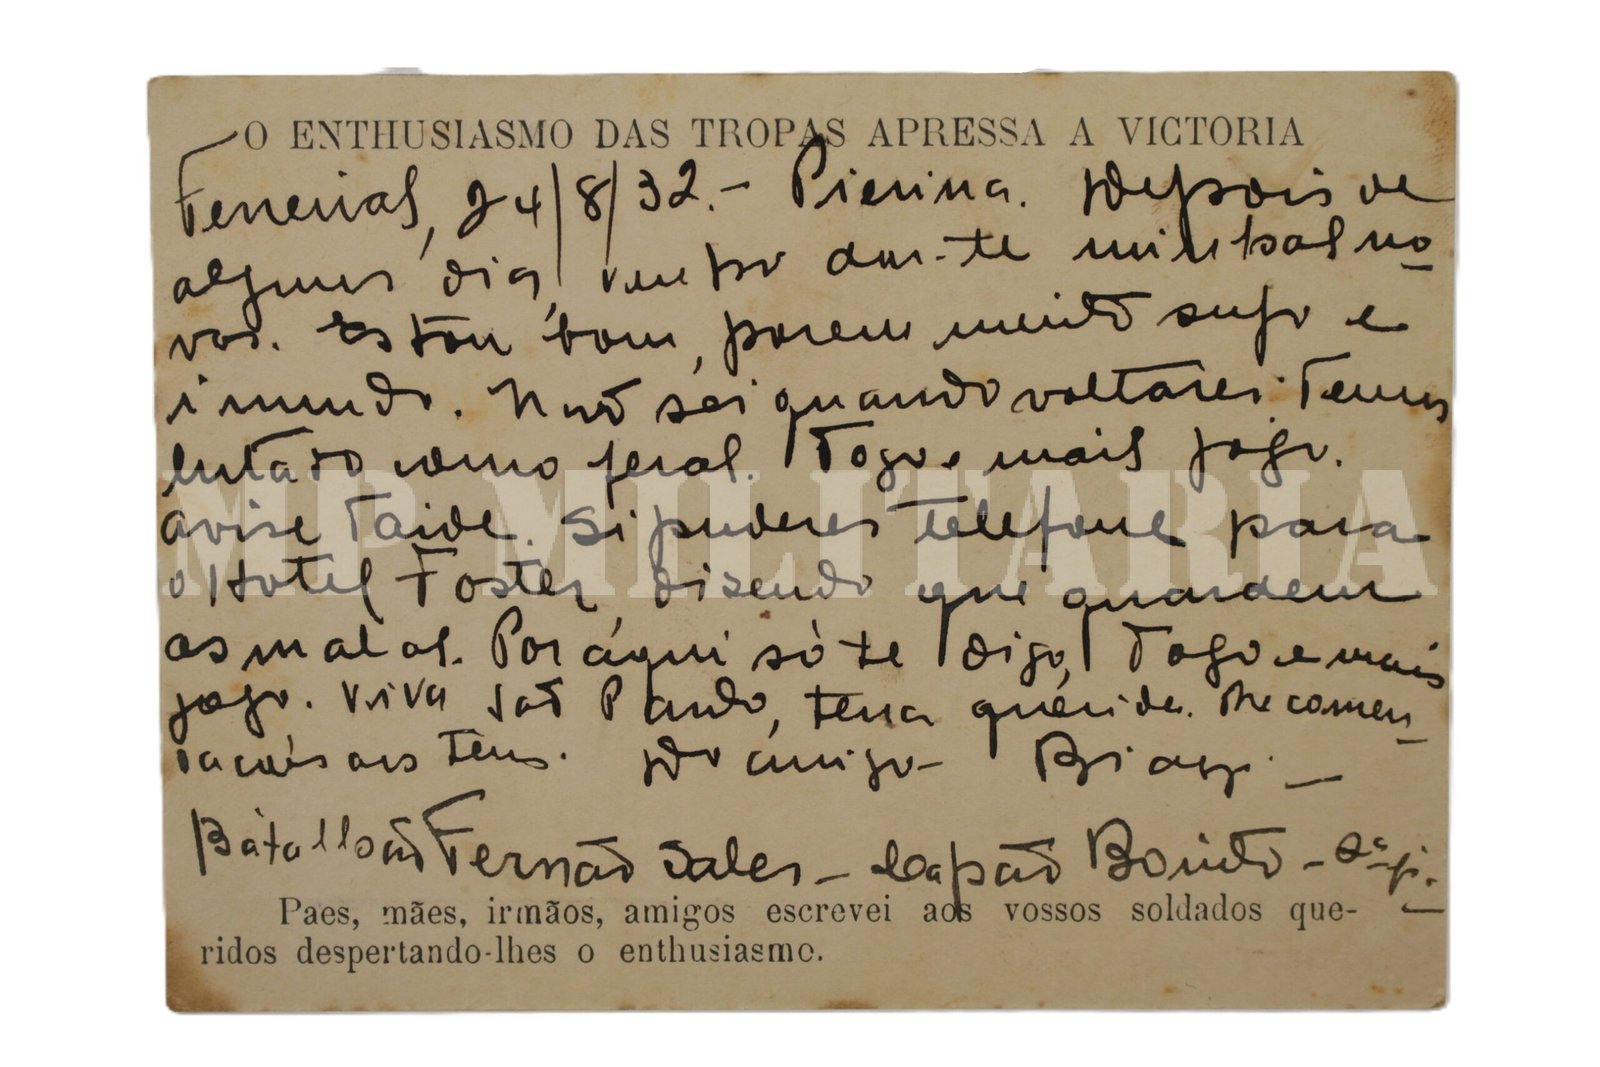 O ENTHUSIASMO DAS TROPAS APRESSA A VICTORIA
24/8/32.- Pierina. Depois de
alguns dias, venho dar-te minhas no-
vas. Estou bom, porem muito sujo e
imundo. Não sei quando voltarei. Temos
lutado como feras. Fogo e mais fogo.
avise Taide. Si puderes telefone para
o Hotel Foster, disendo que guardem
as malas. Por áqui só te digo, Fogo e mais
fogo. Viva São Paulo, terra querida. Recomen-
dacões aos teus. Do ámigo Biagi. -
Batalhão Fernão Sales - Capão Bonito -
Paes, mães, irmãos, amigos escrevei aos vossos soldados que-
ridos despertando-lhes o enthusiasmo.
MP MILITARIA